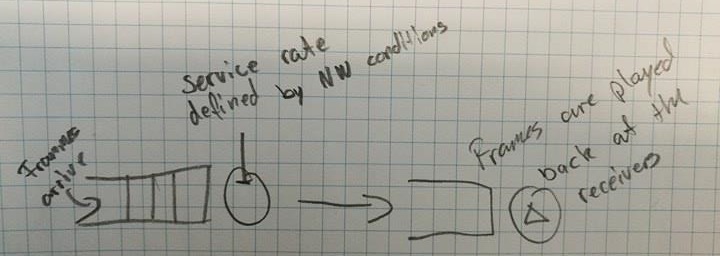 Frames
arrive
service rate
defined by NW conditions
Frames are played
back at the
receivers